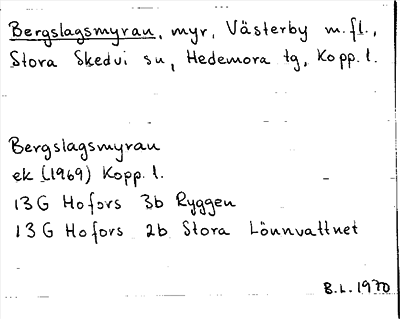 Bergslagsmyran, myr, Västerby m.fl.,
Stora Skedvi sn, Hedemora tg, Kopp.l.
Bergslagsmyran
ek (1969) Kopp. l.
13G Hofors 3b Ryggen
13G Hofors 2b Stora Lönnvattnet
B.L. 1970